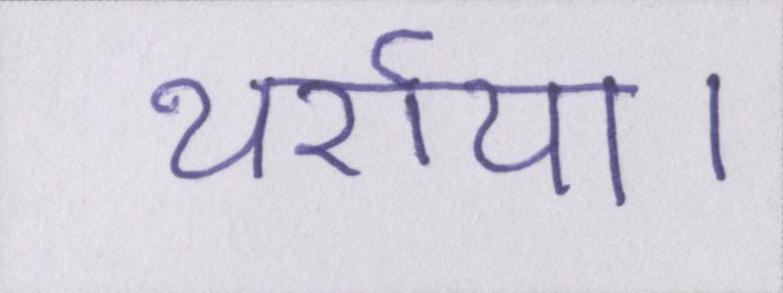 थर्राया।